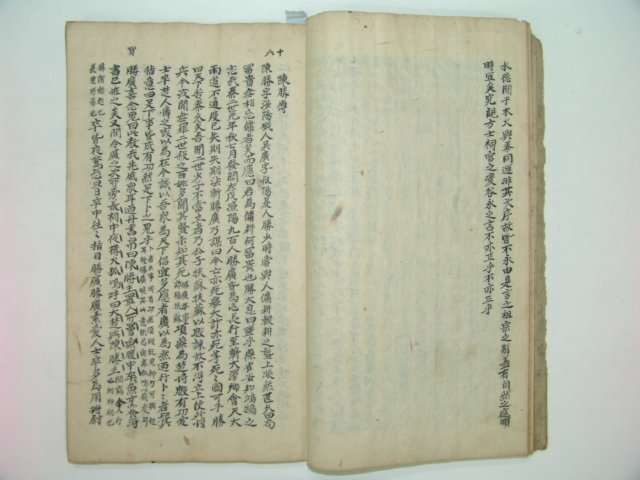 水德閒于木火與秦同運非其次序故皆不永由是言之祖宗之制盖有自然之應順
時宜矣究觀方士祠官之變谷永之言不亦正乎不亦正乎
十六
陳勝傳
陳勝字涉陽城人吳廣字叔陽夏人勝少時嘗與人傭耕輟耕之壟上悵然甚久曰苟
富貴無相忘傭者笑而應曰若為傭耕何富貴也勝太息曰嗟乎燕雀安知鴻鵠之
志哉秦二世元年秋七月發閭左戍漁陽九百人勝廣皆為屯長行至蘄大澤鄉會天大
雨道不通度已失期失期法斬勝廣乃謀曰今亡亦死舉大計亦死等死死國可乎勝
曰天下苦秦久矣吾聞二世少子不當立當立者乃公子扶蘇扶蘇以數諫故不得立上使外將
兵今或聞無罪二世殺之百姓多聞其賢未知其死項燕為楚將數有功愛
士卒楚人憐之或以為在今誠以吾衆為天下倡宜多應者廣以為然迺行卜卜者知其
指意曰足下事皆成有功然足下卜之鬼乎
勝廣喜念鬼曰此教我先威衆耳迺丹書帛曰陳勝王置人所罾魚腹中卒買魚烹食得
書已怪之矣又間令廣之次所旁叢祠中夜構火狐鳴呼曰大楚興陳勝王
卒皆夜驚恐旦日卒中往往指目勝廣勝廣素愛人士卒多為用將尉